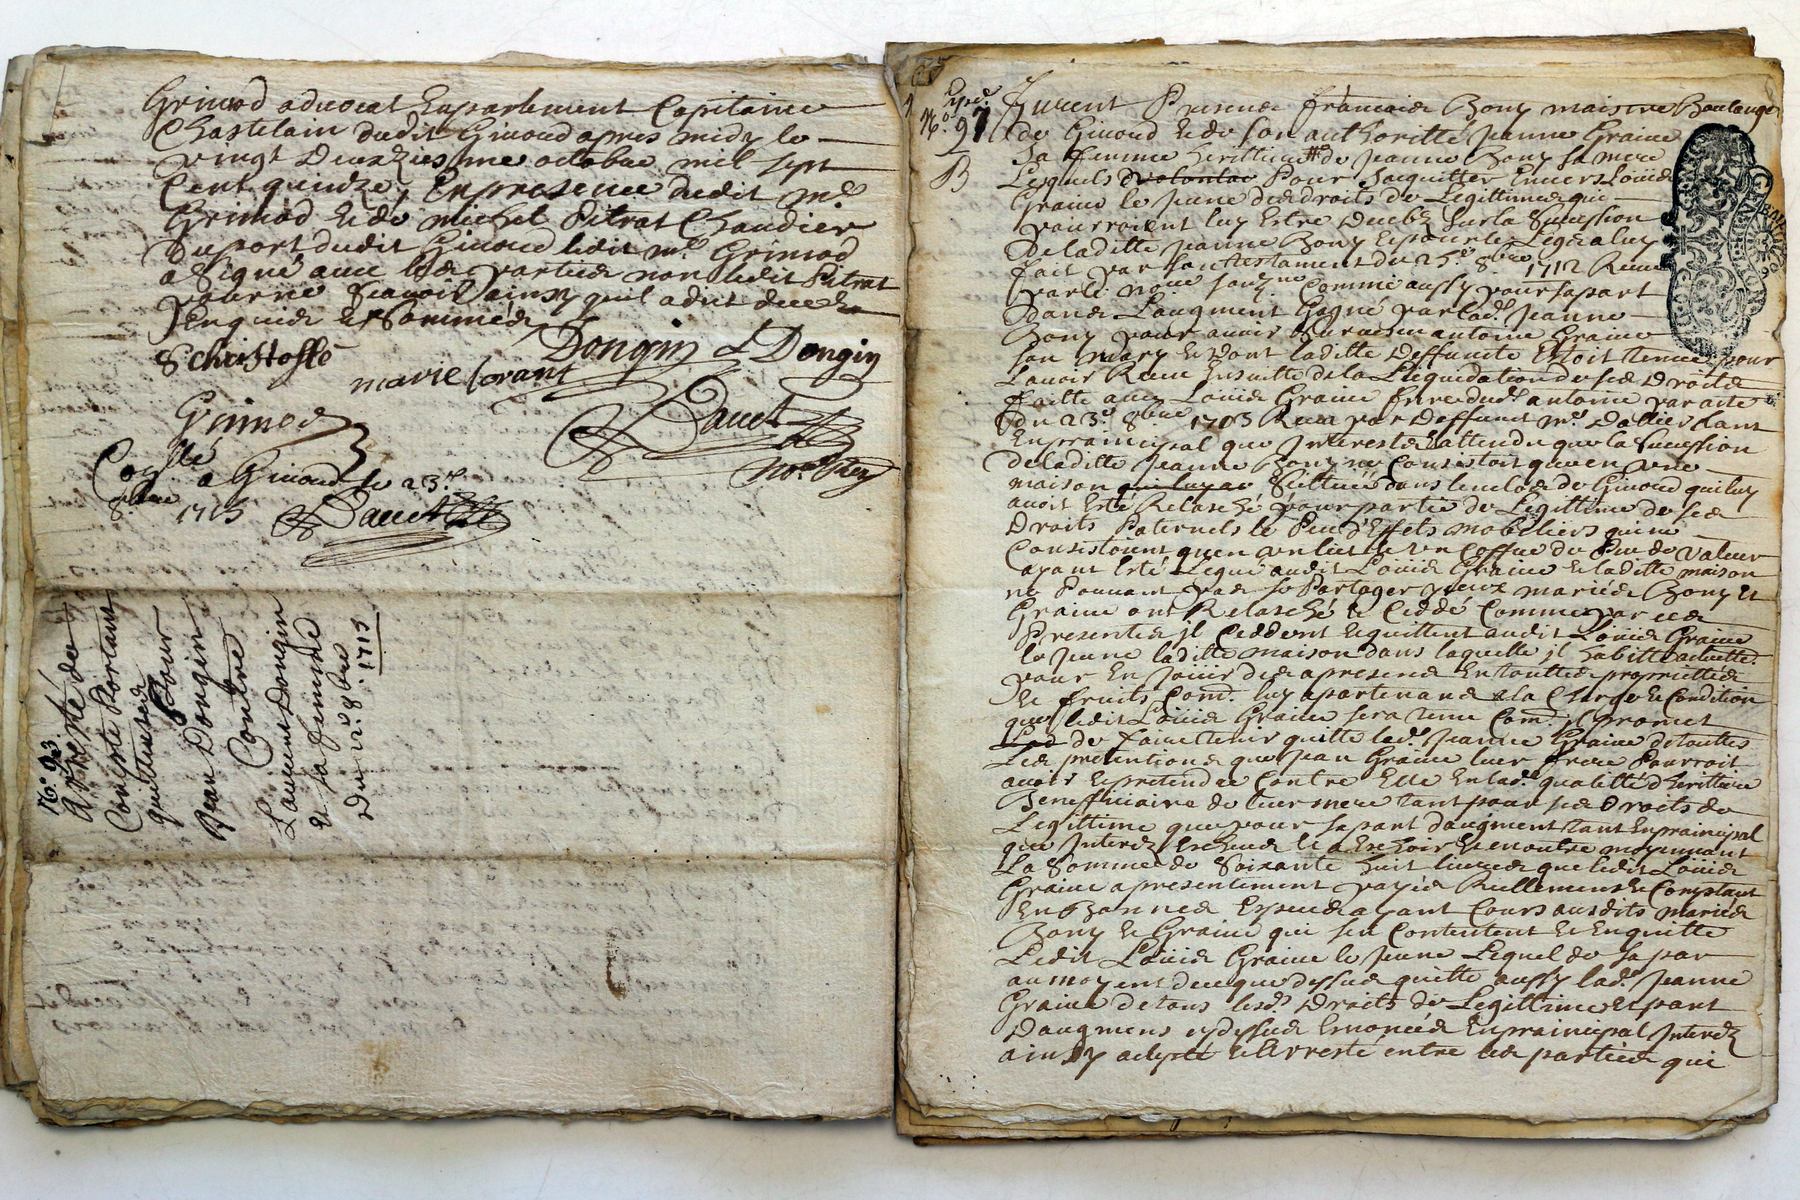 Grimod advocat En parlement Capitaine
Chastelain dudit Givord apres midy le
vingt deuxziesme octobre mil sept
Cent quinze, En presence dudit Mr.
Grimod et de michel Pitrat Chaudier
du port dudit Givord ledit Mr. Grimod
a Signé avec les parties non ledit Pitrat
pour ne Scavoir ainsy quil a dit de ce
Enquis et Sommés
S christofle
marie lorant
Dongin
Dongin
Grimod
Dauet
Coll
a Givord le 23e
8bre 1715
Dauet
N.o 93
Arresté de
Compte Portant
quittance
Pour
Jean Dongin
Contre
Laurent Dongin
et sa femme
Du 22e 8bre 1715
N.o 97
B
furent Presens francois Bony maistre Boulanger
de Givord et de son authoritté Jeanne Graine
sa femme herittiere de Jeanne Bony sa mere
Lesquels Pour Sacquitter Envers Louis
Graine le Jeune des droits de Legittime qui
pourroient luy Estre deubs Sur la Succession
De laditte Jeanne Bony Et pour le Legs a luy
fait par son testament du 25e 8bre 1712 Receu
par le no.re souz.ne Comme aussy pour sa part
dans Laugment Gagné par lad. Jeanne
Bony pour avoir Survescu antoine Graine
son mary Et dont laditte deffunte Estoit tenue pour
Lavoir Receu Ensuitte de la Liquidation de ses droits
faitte avec Louis Graine frere dud. antoine par acte
du 23e 8bre 1703 Receu par Deffunct Me. Dallier tant
En principal que Interests Et attendu que la Succession
de laditte Jeanne Bony ne Consistoit quen une
maison Scittuée dans lenclos de Givord qui luy
avoit Esté Relasché pour partie de Legittime de ses
Droits Paternels le Peu d'Effets mobiliers qui ne
Consistoient quen un lict et un Coffre de Peu de valeur
ayant Esté Legué audit Louis Graine et laditte maison
ne Pouvant pas se Partager yceux mariés Bony Et
Graine ont Relasché et Ceddé Comme par ces
Presentes jl Ceddent et quittent audit Louis Graine
le Jeune laditte maison dans laquelle jl habitte actuelle.
pour En Jouir des a present En touttes proprietté
et fruits Com.e luy apartenans a la Charge et Condition
que ledit Louis Graine sera tenu Com.e jl promet
de faire tenir quitte lad. Jeanne Graine de touttes
Les pretentions que Jean Graine leur frere Pourroit
avoir Et pretendre Contre Elle En lad. qualitté dherittiere
Benefficiaire de leur mere tant pour ses Droits de
Legittime que pour sa part daugment tant En principal
que Interes Escheus et a Eschoir Et en outre moyennant
La Somme de Soixante huit livres que ledit Louis
Graine a presentement payée Reellement et Comptant
En Bonnes Especes ayant Cours ausdits mariés
Bony et Graine qui sen Contentent Et En quitte
Ledit Louis Graine le Jeune Lequel de sa par
au moyent de ce que dessus quitte aussy lad. Jeanne
Graine de tous lesd. Droits de Legittime Et part
Daugment cy dessus Enoncés En principal Interes
ainsy a Esté et Arresté entre les parties qui